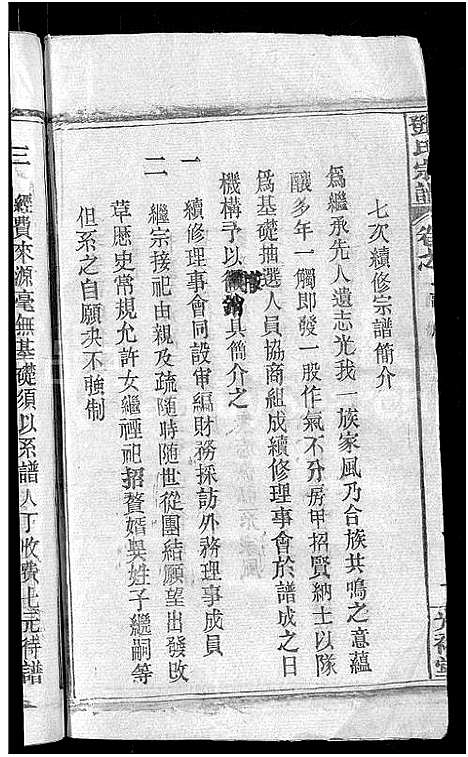 鄧氏宗譜
卷之
七次續修宗譜簡介
為繼承先人遺志光我一族家風乃合族共鳴之意蘊
釀多年一觸即發一股作氣不分房甲招賢納士以隊
為基礎抽選人員協商組成續修理事會於譜成之日
機構予以徹銷具簡介之
一 續修理事會同設审編財務採訪外務理事成員
二 繼宗接祀由親及疏随時随世從團結願望出發改
草歷史常規允許女繼禋祖招贅婚吳姓子繼嗣等
但系之自願决不強制
三 經費來源毫無基礎須以系譜人丁收費七元待譜